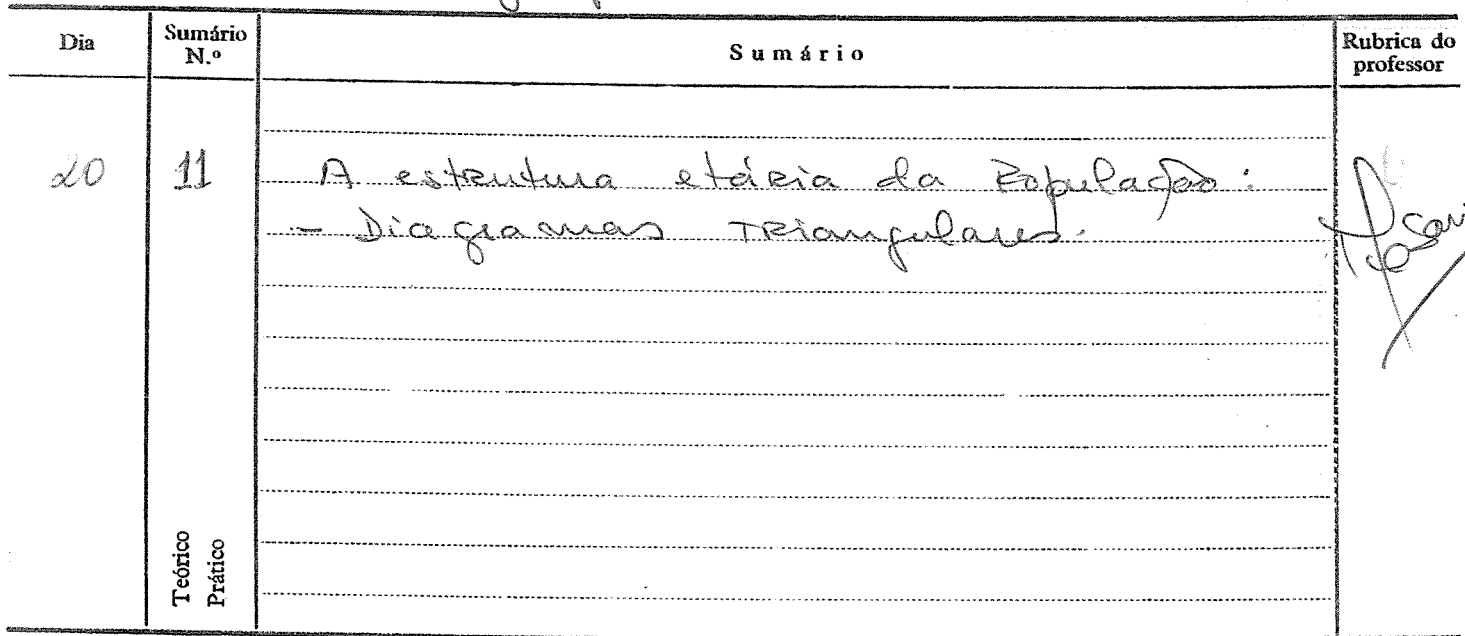 Dia
Sumário
N.º
Sumário
Rubrica do
professor
20
11
A estrutura etária da População:
- Diagramas Triangulares.
Teórico
Prático